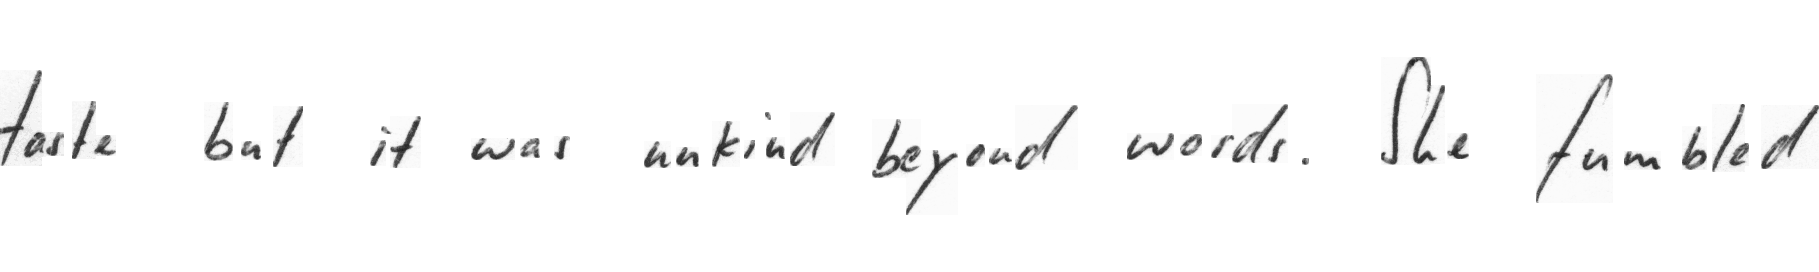 taste but it was unkind beyond words. She fumbled